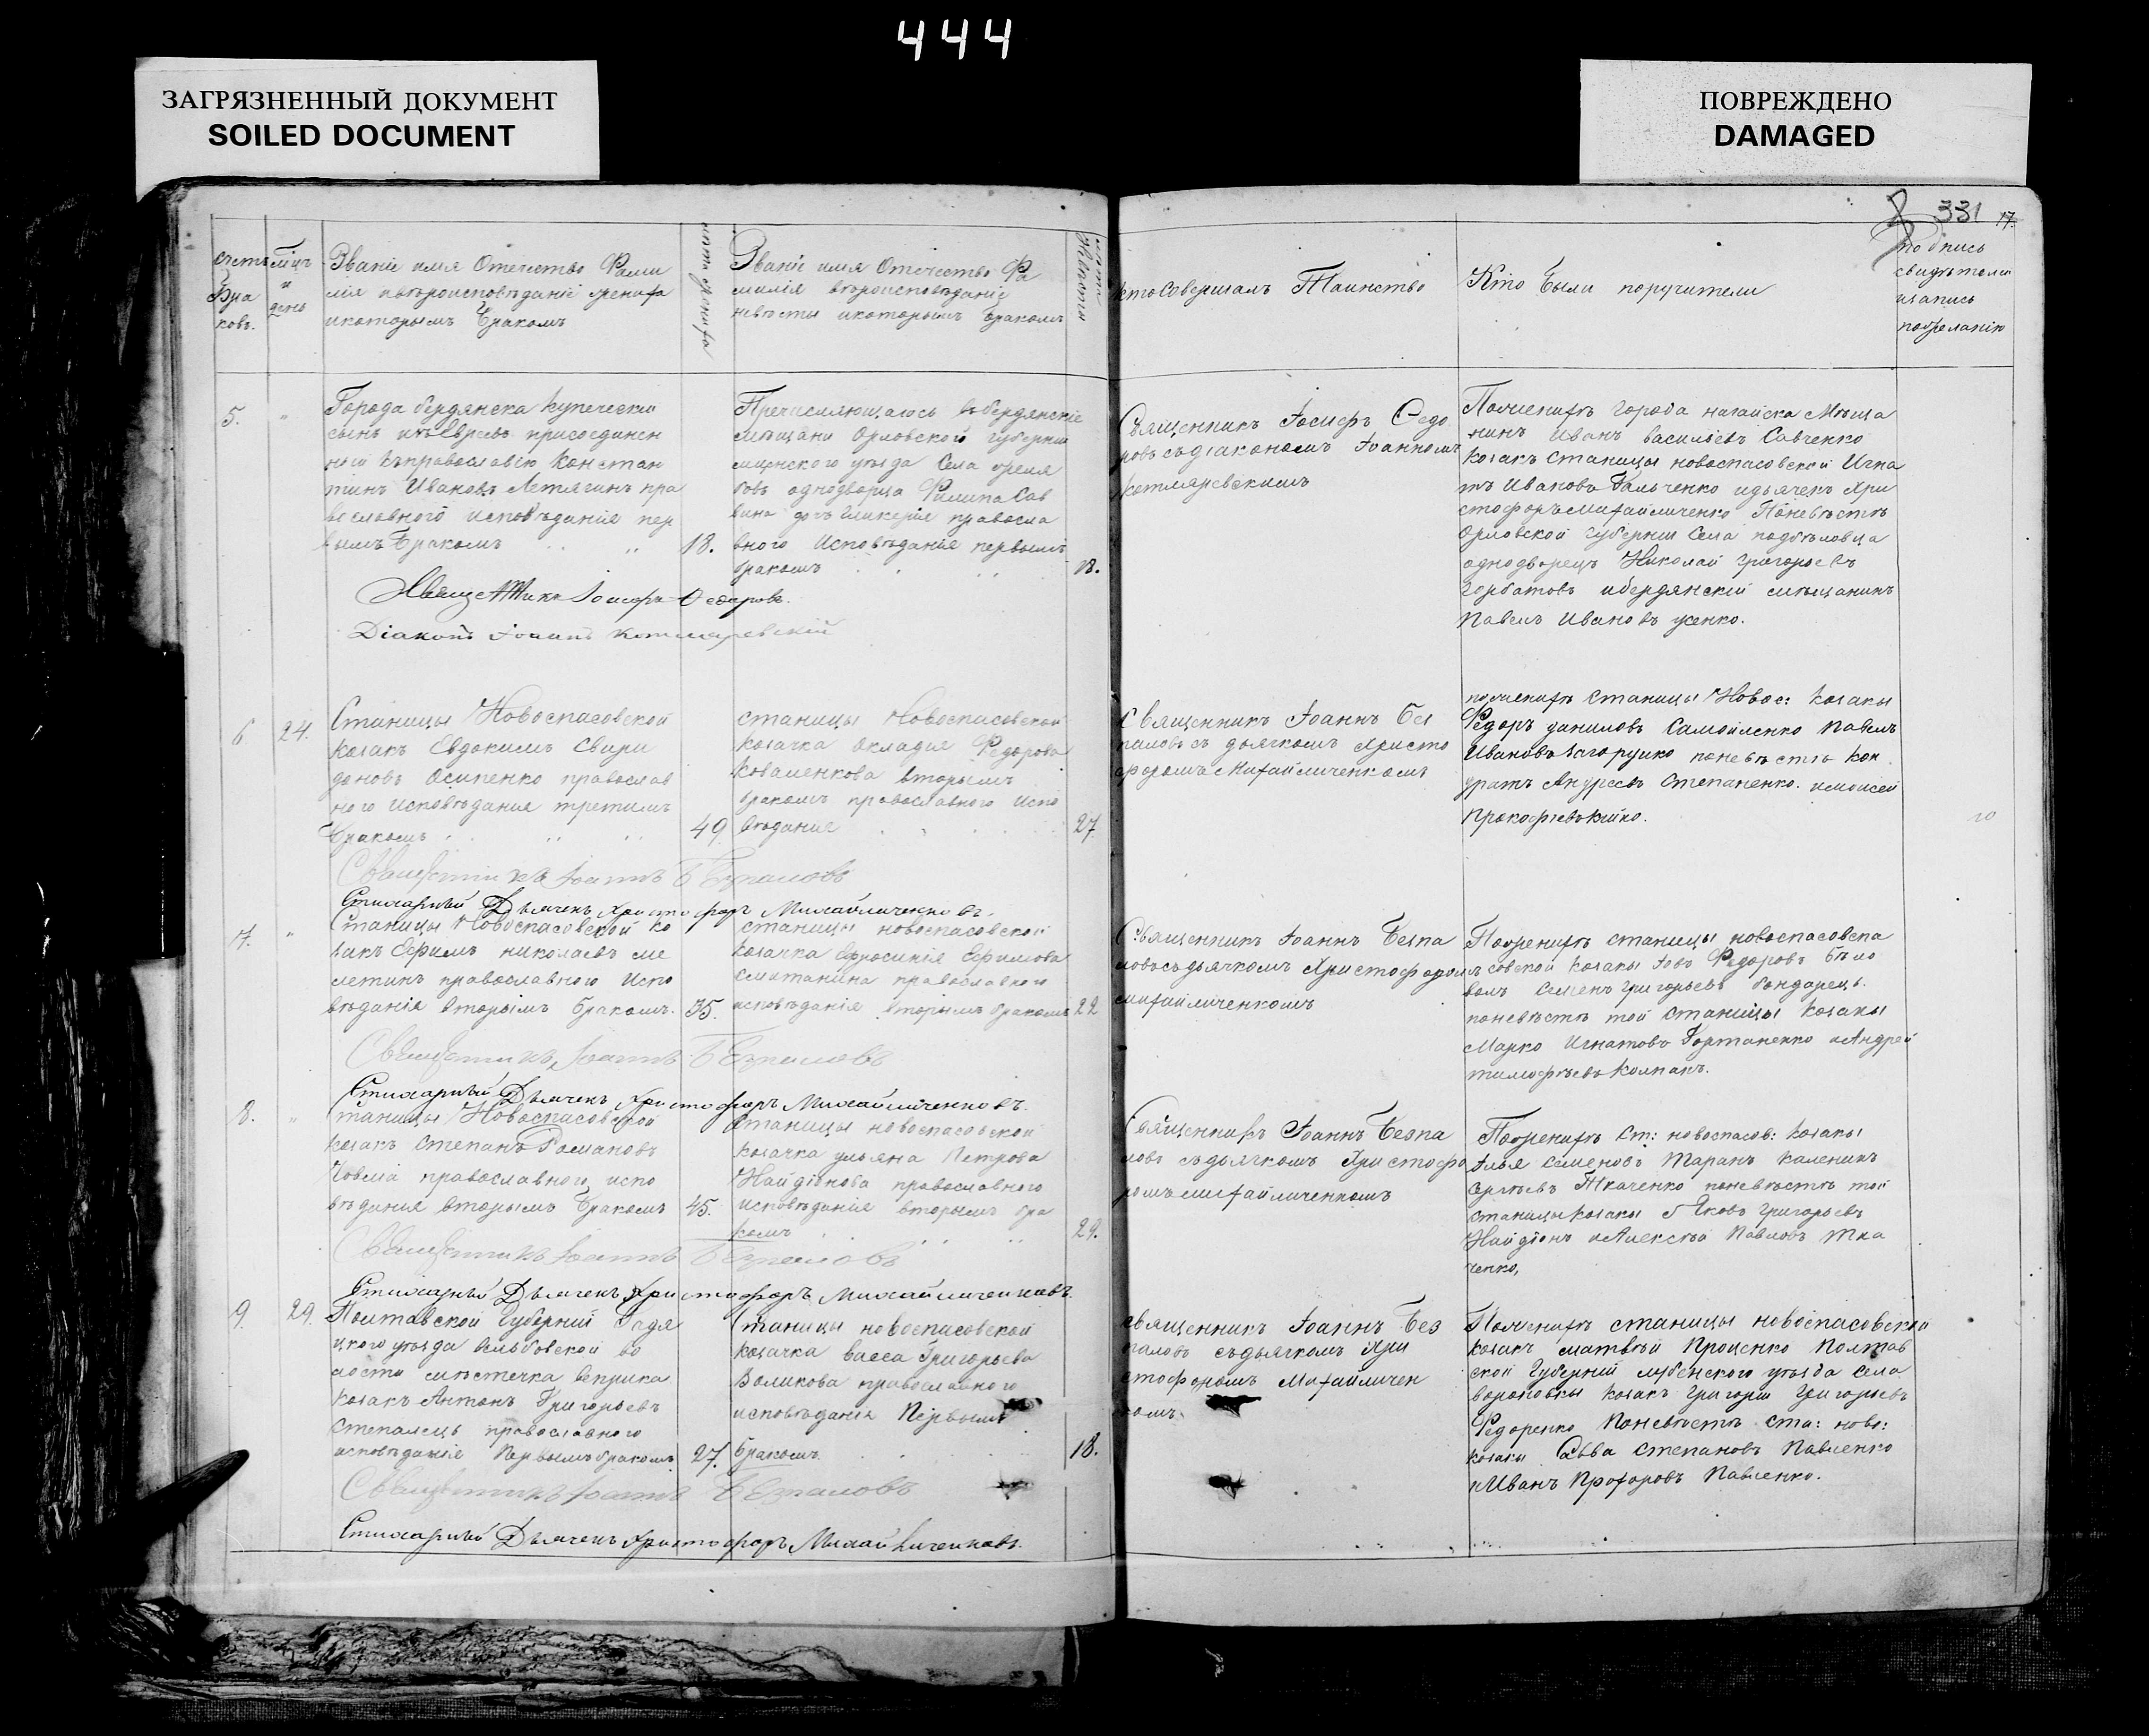 444
ЗАГРЯЗНЕННЫЙ ДОКУМЕНТ
SOILED DOCUMENT
ПОВРЕЖДЕНО
DAMAGED
331 17.
счетъ
Бра
ковъ.
мѣцъ
и
день
Званіе имя Отечество Фами
лія ивѣроисповѣданіе жениха
икоторымъ Бракомъ
лета жениха
Званіе имя Отечество Фа
милія вѣроисповѣданіе
невѣсты икоторымъ бракомъ
лета
Невесты
кто Совершалъ Таинство
Кто Были поручители
подпись
свидѣтелей
изапись
пожеланію
5.
Города бердянска купеческій
сынъ изъ Евреевъ присоединен
ной къправославію Констан
тинъ Ивановъ Летягинъ пра
вославного исповѣданія пер
вымъ Бракомъ
18.
Пречисляющагось въбердянскіе
мещани Орловской губерніи
уезда Села
однодворца Филипа Сав
вина дочь Гликерія правосла
вного Исповѣданія первымъ
бракомъ
18.
Священникъ Іосифъ Федо
ровъ съдіакономъ Іоанномъ
котляревскимъ
Поженихѣ города нагайска Мѣща
нинъ Иванъ васильевъ Савченко
Козакъ Станицы новоспасовской Игна
тъ Ивановъ Гальченко идьячекъ Хри
стофоръ Михайличенко Поневѣстѣ
Орловской губерніи Села
однодворецъ Николай григорьевъ
Горбатовъ ибердянскій мѣщанинъ
Павелъ Ивановъ усенко.
Священникъ Іосифъ Федоровъ.
Діаконъ Іоаннъ котляревскій
6
24.
Станицы Новоспасовской
козакъ Евдокимъ Свири
доновъ Осипенко православ
ного исповѣданія третимъ
Бракомъ
49
станицы Новоспасовской
козачка Федорова
Коваленкова вторымъ
бракомъ православного испо
вѣданія
27
священникъ Іоаннъ Без
паловъ съ дьячкомъ Христо
форомъ Михайличенкомъ
поженихѣ станицы Новос: козаки
Федоръ даниловъ Самойленко Павелъ
Ивановъ Загорулко поневѣстѣ Кон
дратъ Андреевъ Степаненко. имоисей
Прокофьевъ
Священникъ Іоаннъ Безпаловъ
Стихарный Дьячекъ Христофоръ Михайличенковъ.
7.
Станицы Новоспасовской ко
закъ Ефимъ николаевъ ме
летинъ православного Испо
вѣданія вторымъ бракомъ.
35.
станицы новоспасовской
козачка Ефросинія Ефимова
сметанина православного
исповѣданія вторымъ бракомъ
22
Священникъ Іоаннъ Безпа
ловъ съдьячкомъ Христофоромъ
михайличенкомъ
Поженихѣ станицы новоспаспа
совской козаки Іовъ Федоровъ Бѣло
волъ Семенъ григорьевъ бондарецъ.
поневѣстѣ той станицы козаки
Марко Игнатовъ Гортаненко иАндрей
тимофѣевъ Колпакъ.
Священникъ Іоаннъ Безпаловъ
Стихарный Дьячекъ Христофоръ Михайличенковъ.
8.
Станицы Новоспасовской
козакъ Степанъ Романовъ
православного испо
вѣданія вторымъ Бракомъ
45.
Станицы новоспасовской
козачка ульяна Петрова
Найдіонова православного
исповѣданія вторымъ бра
комъ
29.
Священникъ Іоаннъ Безпа
ловъ съдьячкомъ Христофо
ромъ михайличенкомъ
Поженихѣ Ст: новоспасов: козаки
Илья Семеновъ Таранъ каленикъ
Сергѣевъ Ткаченко поневѣстѣ той
станицы козаки Яковъ григорьевъ
Найдіонъ иАлексѣй Павловъ Тка
ченко,
Священникъ Іоаннъ Безпаловъ
Стихарный Дьячекъ Христофоръ Михайличенковъ.
9.
29.
Полтавской Губерніи Гадя
цкого уѣзда во
лости мѣстечка веприка
козакъ Антонъ Григорьевъ
степанецъ православного
исповѣданія Первымъ бракомъ
27.
Станицы новоспасовской
козачка васса Григорьева
Воликова православного
исповѣданія Первымъ
бракомъ
18.
священникъ Іоаннъ Без
паловъ съдьячкомъ Хри
стофоромъ Михайличен
комъ.
Поженихѣ станицы новоспасовской
козакъ матвѣй Проценко Полтав
ской Губерніи лубенского уѣзда Села
вороновки козакъ григорій Григорьевъ
Федоренко Поневѣстѣ ста: ново:
козаки Савва степановъ Павленко
иИванъ Прохоровъ Павленко.
Священникъ Іоаннъ Безпаловъ
Стихарный Дьячекъ Христофоръ Михайличенковъ.